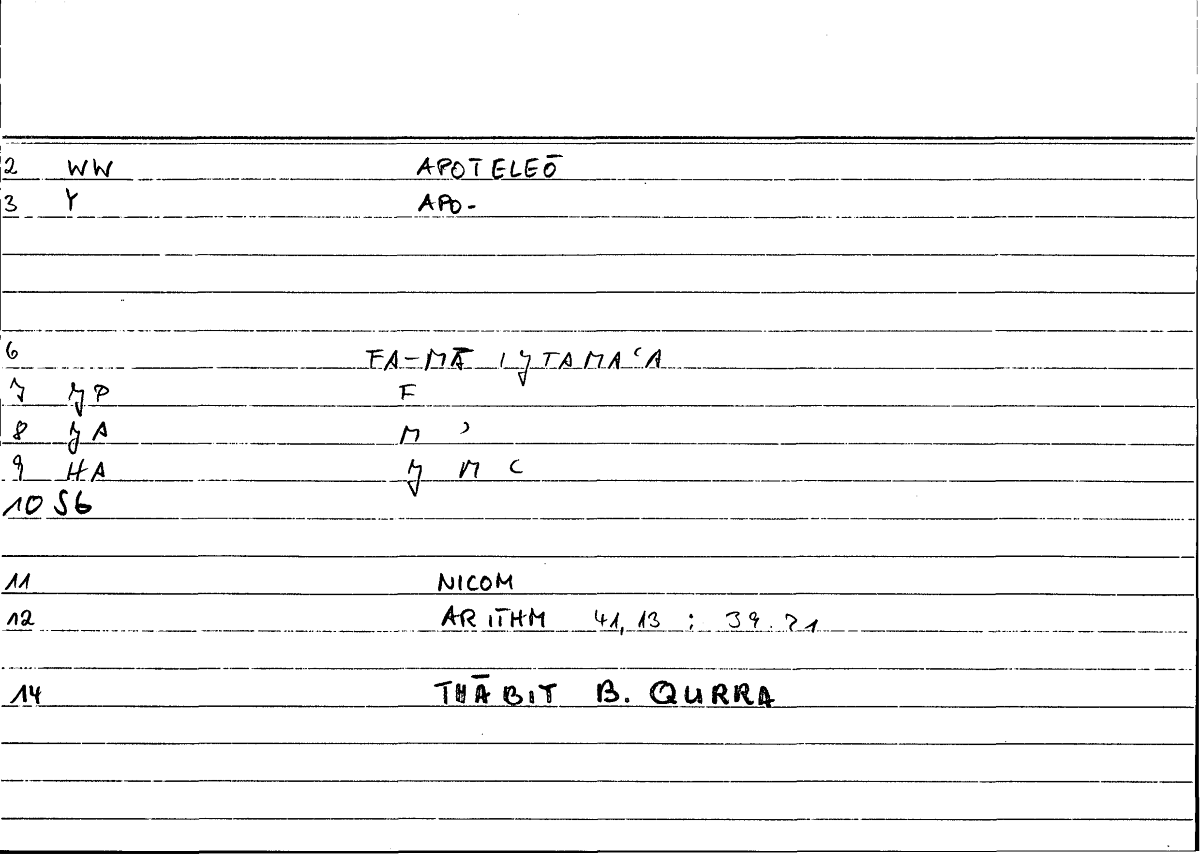 2 WW APOTELEŌ
3 Y APO-
6 FA-MĀ IJTAMAʿA
7 JP F
8 JA M ʾ
9 HA J M C
10 S6
11 NICOM
12 ARITHM 41,13 : 39.21
14 THĀBIT B. QURRA